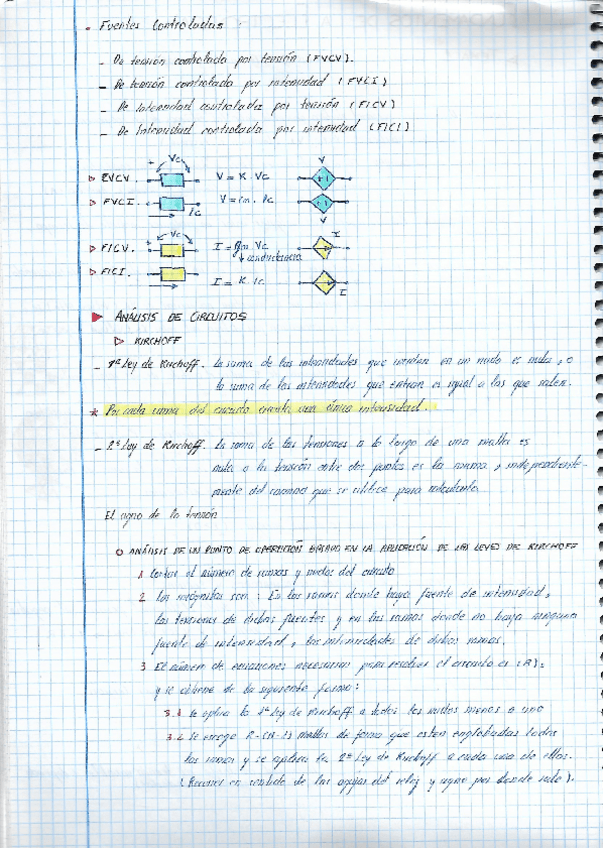 - Fuentes Controladas :
- De tensión controlada por tensión (FVCV).
- De tensión controlada por intensidad (FVCI)
- De Intensidad controlada por tensión (FICV)
- De Intensidad controlada por intensidad (FICI)
+ Vc - V
▷ FVCV. V = K Vc + -
▷ FVCI. Ic V = rm. Ic + - V
+ Vc - I
▷ FICV. I = gm Vc
↓ conductancia
▷ FICI. I = K Ic. I
▶ ANÁLISIS DE CIRCUITOS
▷ KIRCHOFF
- 1ª Ley de Kirchoff. La suma de las intensidades que inciden en un nudo es nula, o
la suma de las intensidades que entran es igual a las que salen.
* Por cada rama del circuito circula una única intensidad.
- 2ª Ley de Kirchoff. La suma de las tensiones a lo largo de una malla es
nula o la tensión entre dos puntos es la misma, independiente-
mente del camino que se utilice para calcularla.
El signo de la tensión
O ANÁLISIS DE UN PUNTO DE OPERACIÓN BASADO EN LA APLICACIÓN DE LAS LEYES DE KIRCHOFF
1 Contar el número de ramas y nudos del circuito
2 Las incógnitas son : En las ramas donde haya fuente de intensidad,
las tensiones de dichas fuentes y en las ramas donde no haya ninguna
fuente de intensidad, las intensidades de dichas ramas.
3 El número de ecuaciones necesarias para resolver el circuito es (R),
y se obtiene de la siguiente forma:
3.1 Se aplica la 1ª Ley de Kirchoff a todos los nudos menos a uno
3.2 Se escoge R-(N-1) mallas de forma que esten englobadas todas
las ramas y se aplica la 2ª Ley de Kirchoff a cada una de ellas.
(Recorrer en sentido de las agujas del reloj y signo por donde sale).